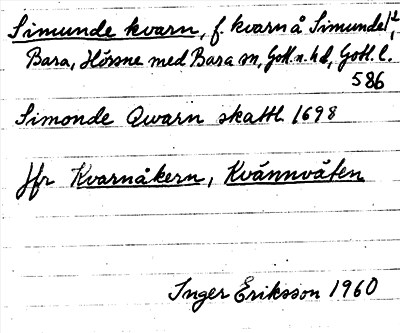 Simunde kvarn, f. kvarn å Simunde 1²,
Bara, Hörsne med Bara sn, Gotl. n. hd, Gotl. l.
586
Simonde Qwarn skattl. 1698
Jfr Kvarnåkern, Kvännvåten
Inger Eriksson 1960